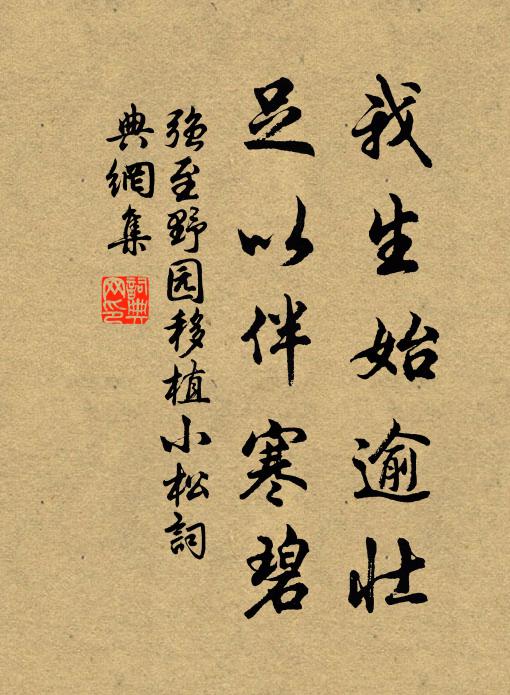 我生始逾壮
足以伴寒碧
强至野园移植小松詞
典網集
詞典网印